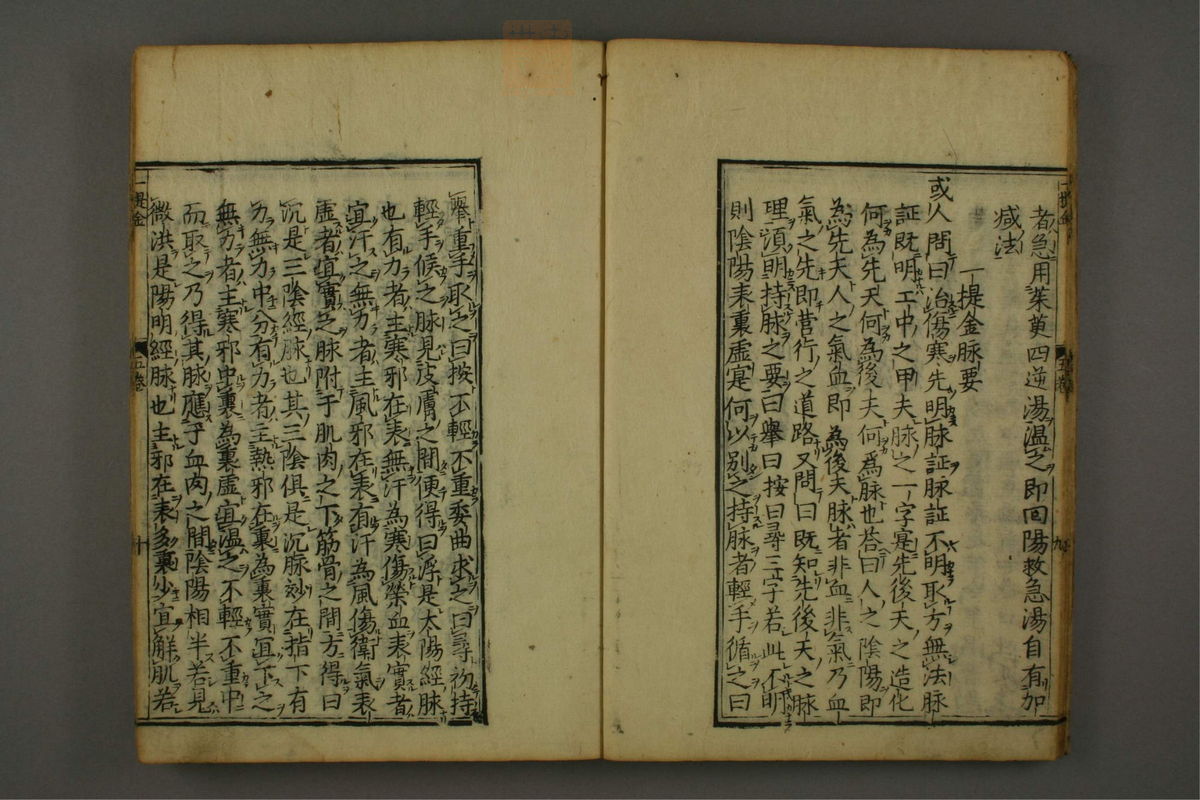 者急用茱萸四逆湯溫之即回陽救急湯自有加
减法
一提金脉要
或人問曰治傷寒先明脉証脉証不明取方無法脉
証既明工中之甲夫脉之一字寔先後天之造化
何為先天何為後天何為脉也荅曰人之陰陽即
為先天人之氣血即為後天脉者非血非氣乃血
氣之先即營行之道路又問曰既知先後天之脉
理須明持脉之要曰舉曰按曰尋三字若此不明
則陰陽表裏虛寔何以別之持脉者輕手循之曰
舉重手取之曰按不輕不重委曲求之曰尋初持
輕手候之脉見皮膚之間便得曰浮是太陽經脉
也有力者主寒邪在表無汗為寒傷榮血表實者
宜汗之無力者主風邪在表有汗為風傷衛氣表
虛者宜實之脉附于肌肉之下筋骨之間方得曰
沉是三陰經脉也其三陰俱是沉脉玅在指下有
力無力中分有力者主熱邪在裏為裏實宜下之
無力者主寒邪中裏為裏虛宜溫之不輕不重中
而取之乃得其脉應乎血肉之間陰陽相半若見
微洪是陽明經脉也主邪在表多裏少宜解肌若
一提金
五卷
九
一提金
五卷
十